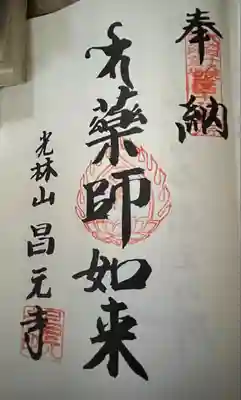 奉納
藥師如来
光林山 昌元寺